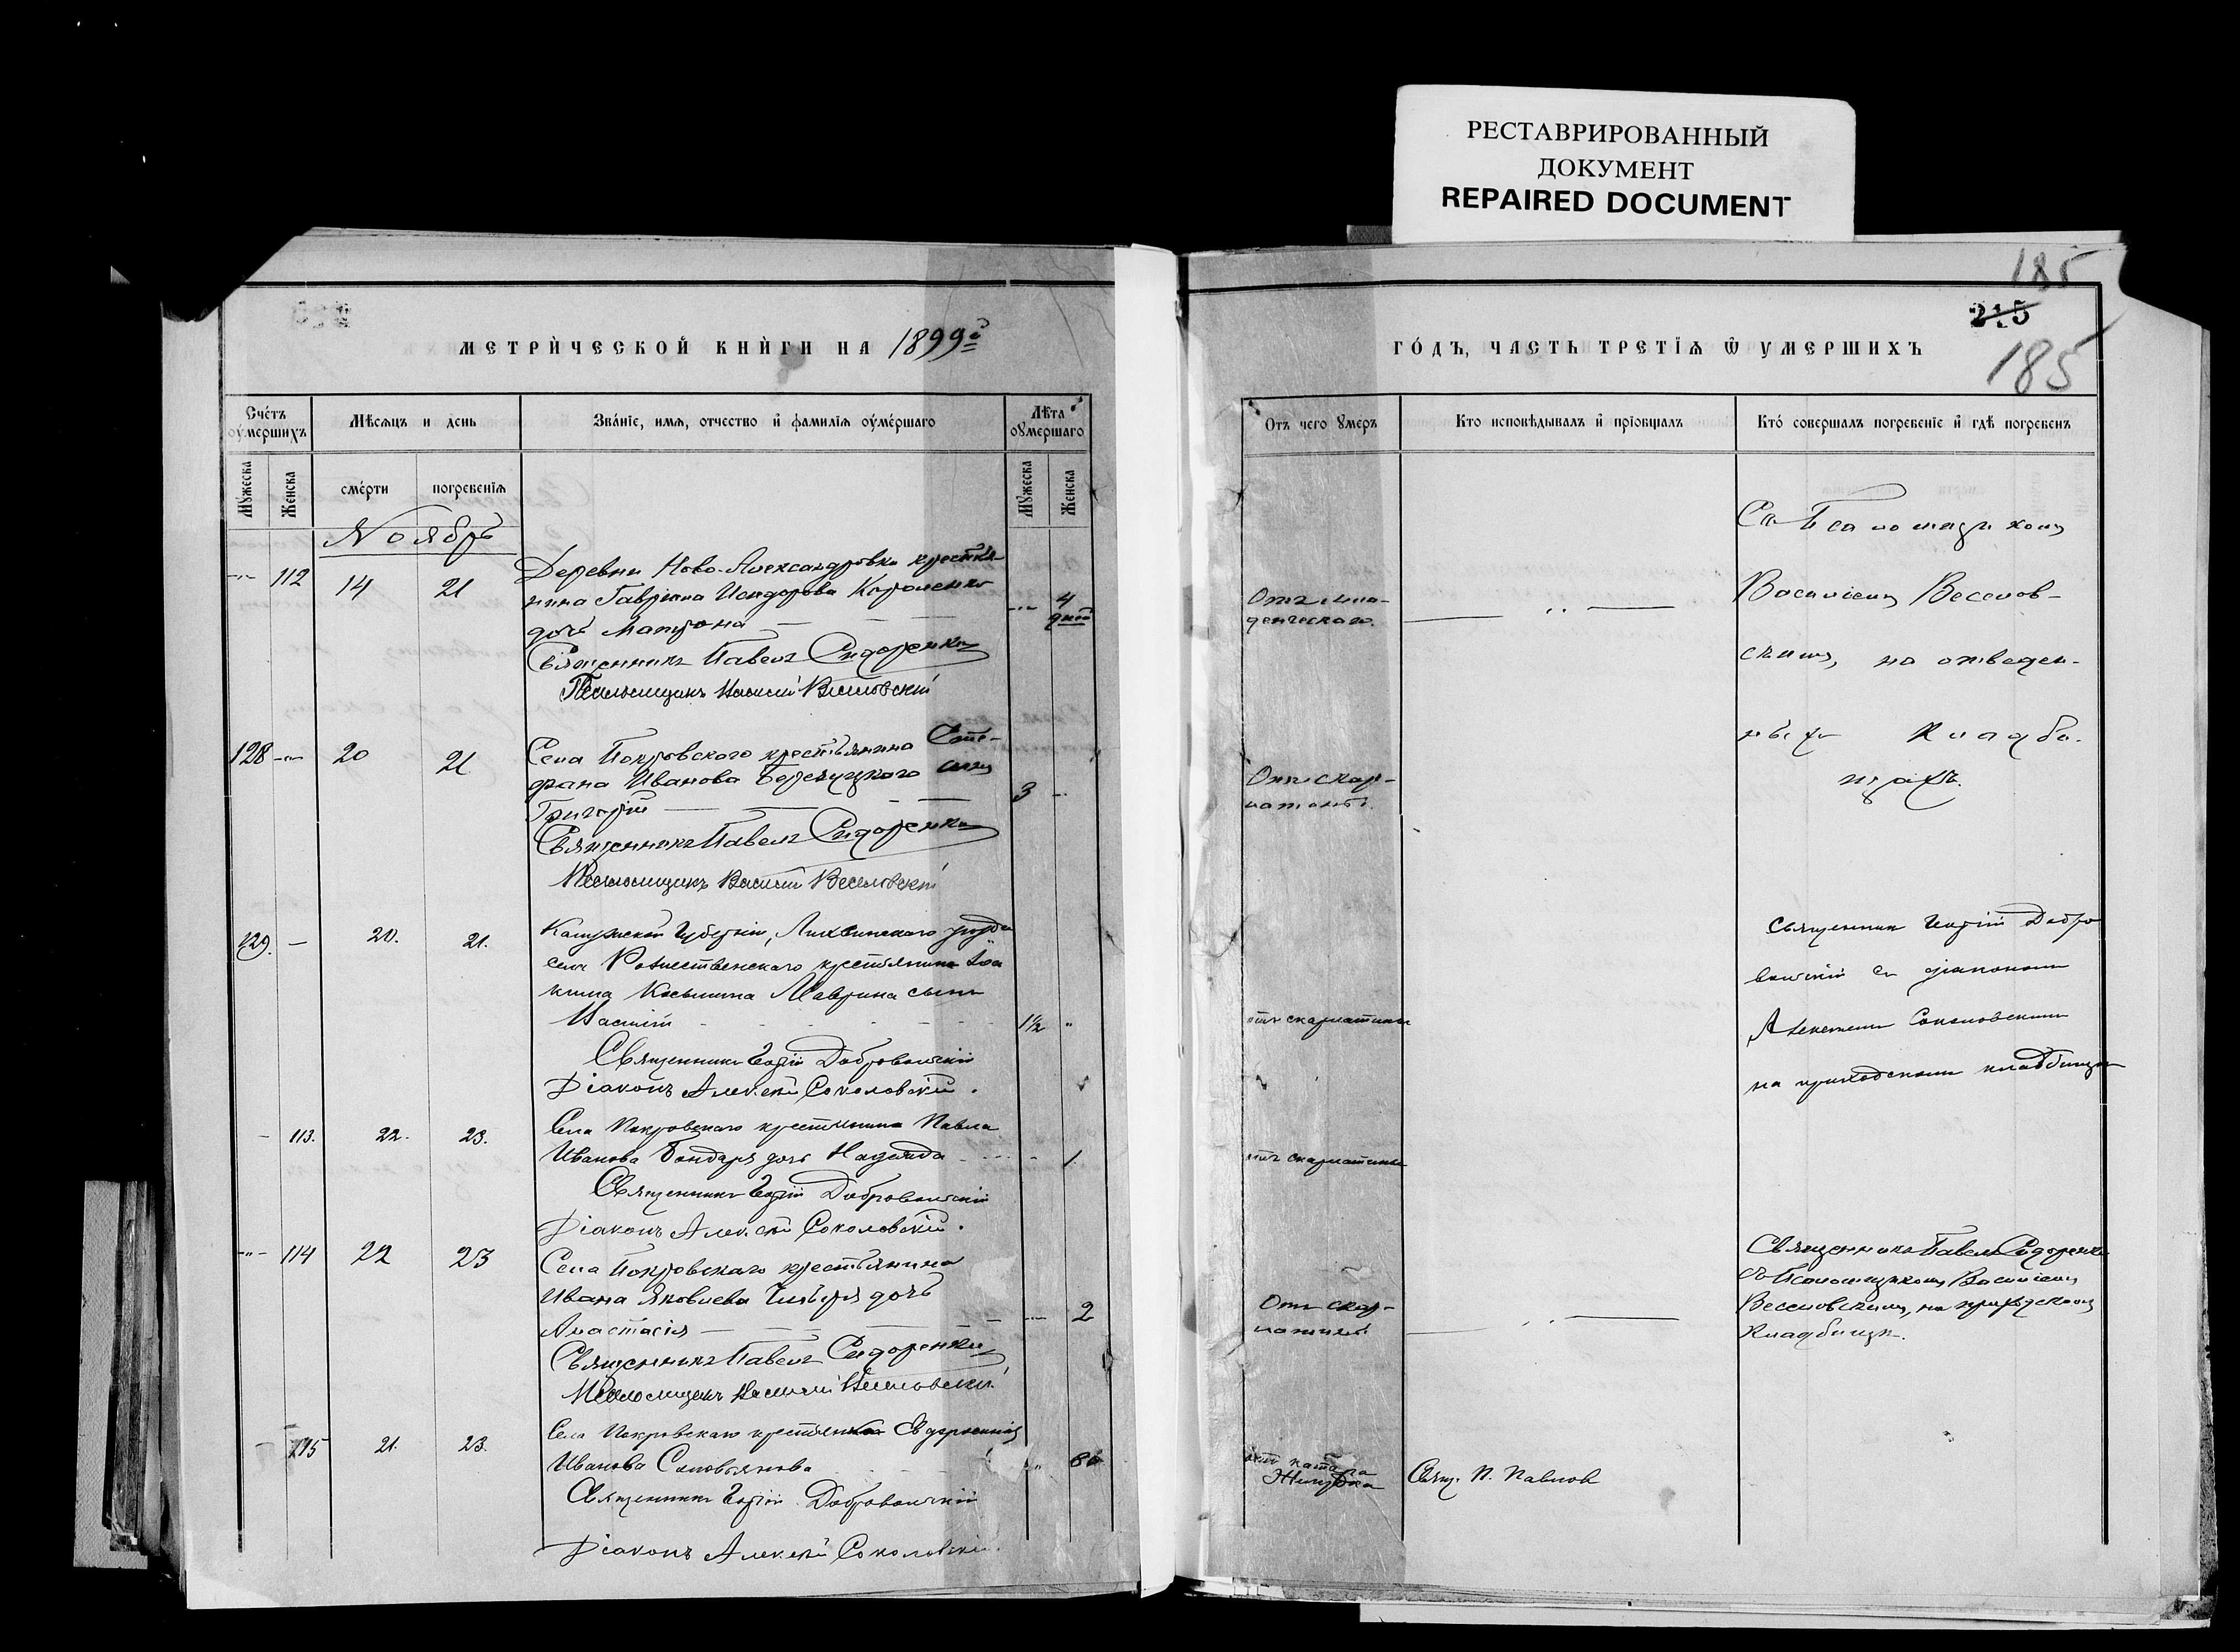 РЕСТАВРИРОВАННЫЙ
ДОКУМЕНТ
REPAIRED DOCUMENT
185
215
185
МЕТРИЧЕСКОЙ КНИГИ НА 1899й
ГОДЪ, ЧАСТЬ ТРЕТІЯ Ѿ УМЕРШИХЪ
Счетъ оумершихъ
Мѣсяцъ и день
Званіе, имя, отчество и фамилія оумершаго
Лѣта оумершаго
Отъ чего умеръ
Кто исповѣдывалъ и пріобщалъ
Кто совершалъ погребеніе и гдѣ погребенъ
Мужеска
Женска
смерти
погребенія
Мужеска
Женска
Ноябрь
112 14 21
Деревни Ново-Александровки крестья-
нина Гавріила Исидорова Короленко
дочь Матрона
4 дней
Священникъ Павелъ Сидоренко
Псаломщикъ Василій Веселовскій
Отъ мла-
денческаго.
Съ Псаломщикомъ
Василіемъ Веселов-
скимъ, на отведен-
ныхъ кладби-
щахъ.
128 20 21
Села Покровскаго крестьянина Сте-
фана Иванова сынъ
Григорій
3
Священникъ Павелъ Сидоренко
Псаломщикъ Василій Веселовскій
Отъ скар-
латины.
129. 20. 21.
Калужской губерніи, Лихвинскаго уѣзда
села Рождественскаго крестьянина Іоа
кима Косьмина Маврина сынъ
Василій
1½
Священникъ Георгій Добровольскій
Діаконъ Алексѣй Соколовскій.
отъ скарлатины
Священник Георгій Добро
вольскій съ діакономъ
Алексѣемъ Соколовскимъ
на приходскомъ кладбищѣ
113. 22. 23.
Села Покровскаго крестьянина Павла
Иванова Бондаря дочь Надежда
1
Священникъ Георгій Добровольскій
Діаконъ Алексѣй Соколовскій.
отъ скарлатины
114 22 23
Села Покровскаго крестьянина
Ивана Яковлева дочь
Анастасія
2
Священникъ Павелъ Сидоренко
Псаломщикъ Василій Веселовскій
Отъ скар-
латины.
Священникъ Павелъ Сидоренко
съ Псаломщикомъ Василіемъ
Веселовскимъ, на приходскомъ
кладбищѣ.
115 21. 23.
Села Покровскаго крестьянка
Иванова
Священникъ Георгій Добровольскій
Діаконъ Алексѣй Соколовскій.
отъ катара
Желудка
Свящ. П. Павлов